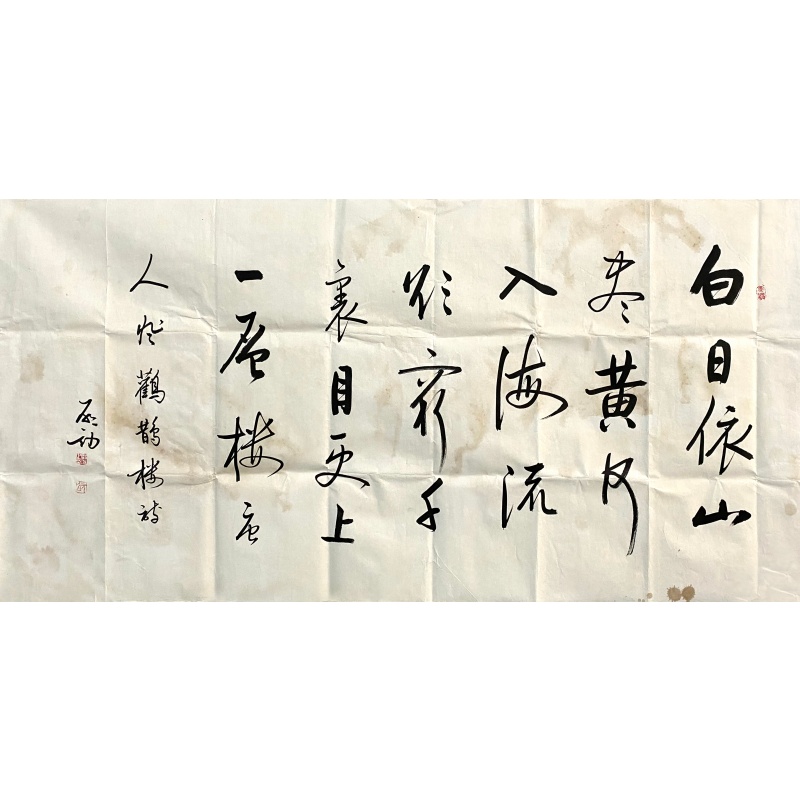 白日依山
尽黄河
入海流
欲穷千
裏目更上
一层楼 唐
人 鸛鵲楼诗
启功